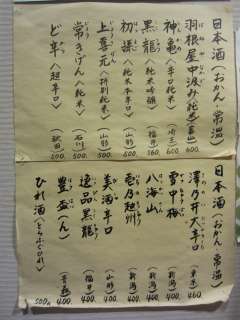 日本酒（おかん、常温）
羽根屋中汲み純悪 富山 600.
神亀〈辛口純米〉（埼玉）600.
黒龍〈純米吟醸〉（福井）560.
初孫〈純米本辛口〉（山形）500.
上喜元〈特別純米〉（山形）500.
常きげん〈純米〉（石川）500.
ど辛〈超辛口〉（秋田）500.
日本酒（おかん 常温）
澤乃井大辛口（東京）460.
雪中梅（新潟）400.
八海山（新潟）400.
壱乃越州（新潟）400.
美酒辛口（山形）400.
逸品黒龍（福井）400.
豊盃（ん）（青森）400.
ひれ酒〈とらふぐひれ〉500円